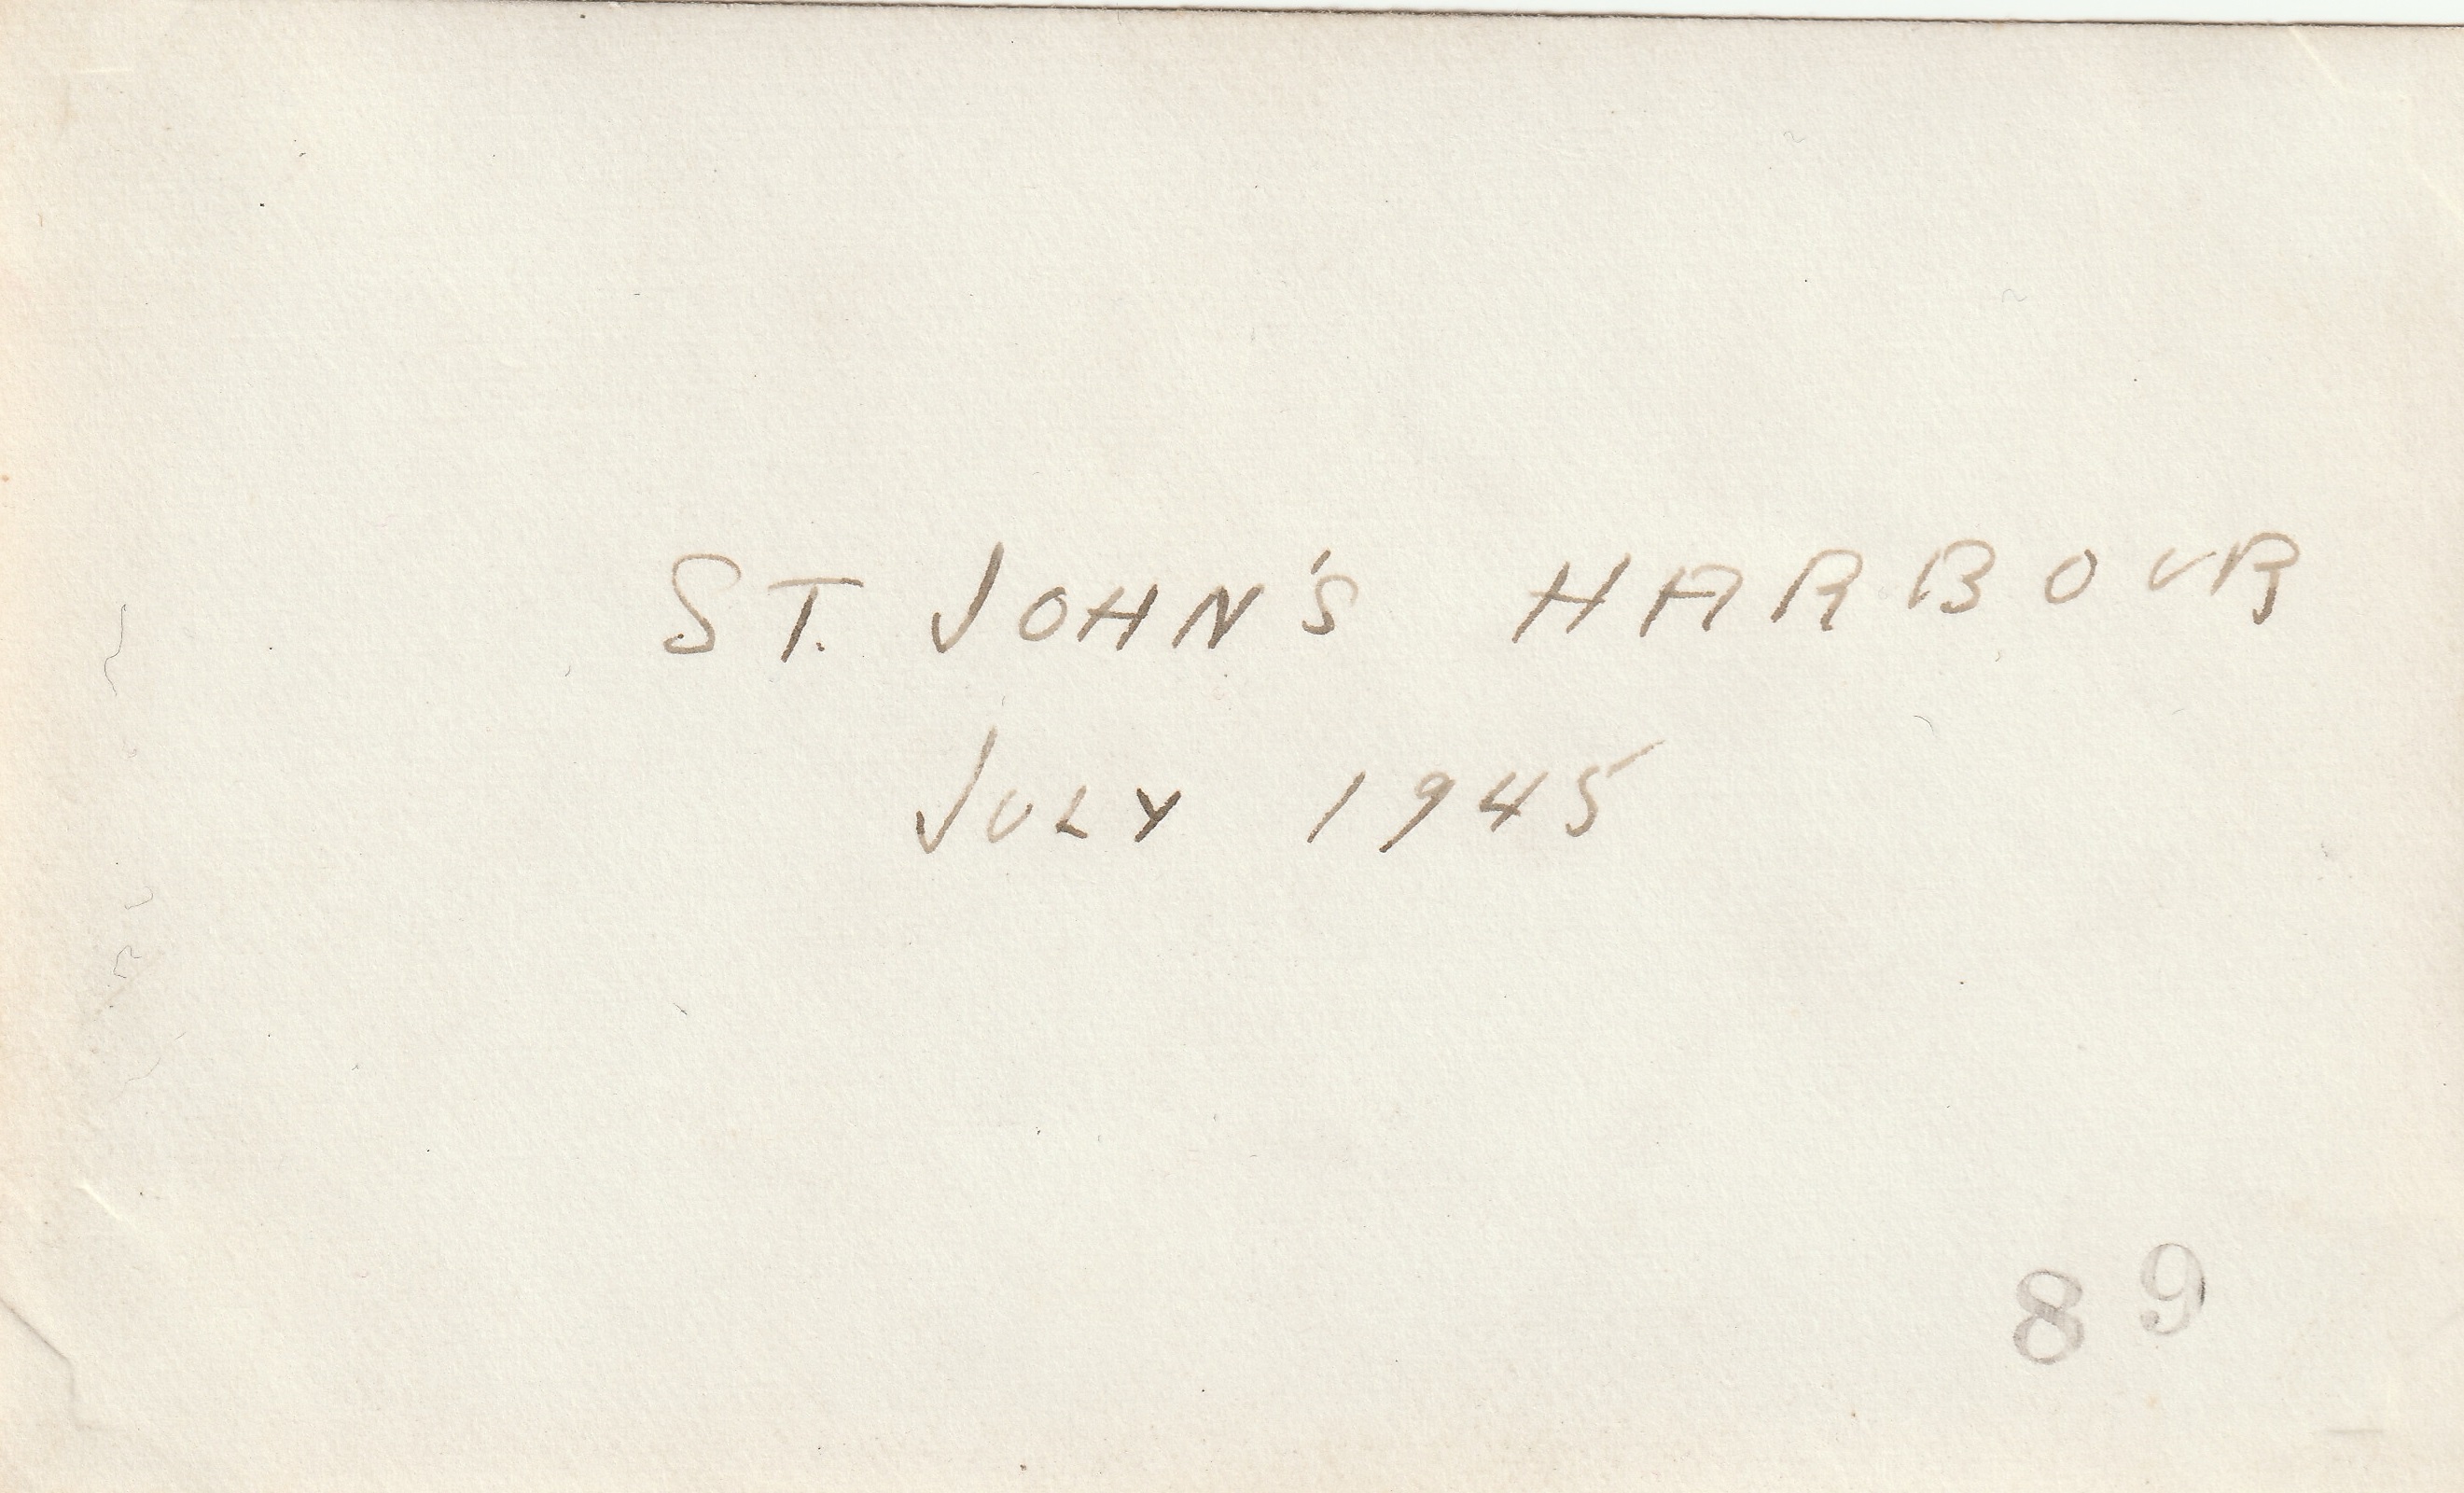 ST. JOHN'S HARBOUR
JULY 1945
89